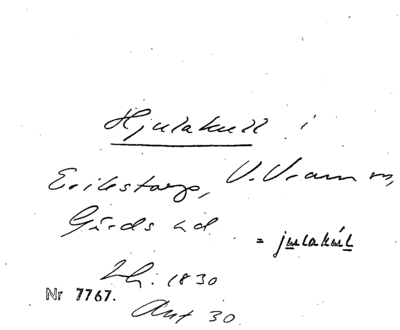 Hjulakull i
Erikstorp, V. Vram sn,
Gärds hd
= julakúl
Lh. 1830
Nr 7767.
Ant 30